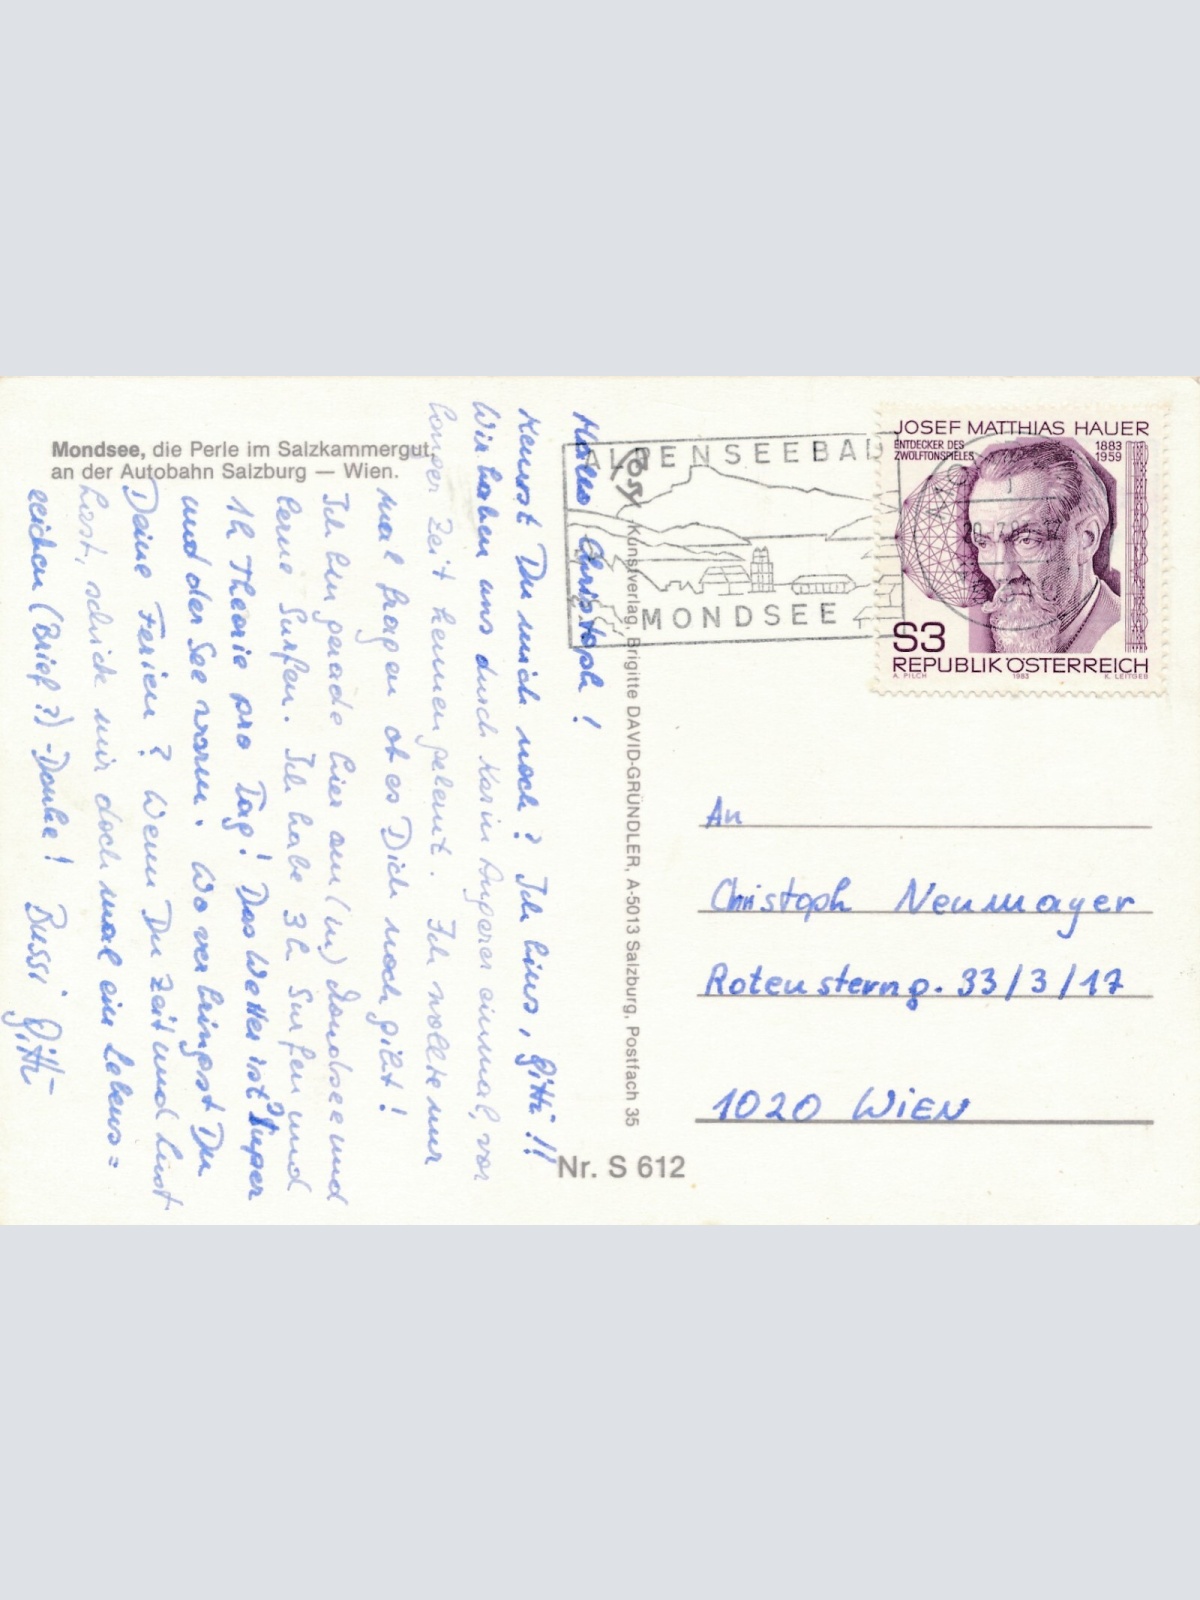 Mondsee, die Perle im Salzkammergut,
an der Autobahn Salzburg — Wien.
Hallo Christoph!
Kennst Du mich noch? Ich bins, Gitti!!
Wir haben uns durch Karin Angerer einmal, vor
langer Zeit kennengelernt. Ich wollte nur
mal fragen ob es Dich noch gibt!
Ich bin gerade hier am (im) Mondsee und
lerne Surfen. Ich habe 3h Surfen und
1h Theorie pro Tag! Das Wetter ist super
und der See warm. Wo verbringst Du
Deine Ferien? Wenn Du Zeit und Lust
hast, schick mir doch mal ein Lebens=
zeichen (Brief?) - Danke! Bussi Gitti
Kunstverlag, Brigitte DAVID-GRÜNDLER, A-5013 Salzburg, Postfach 35
Nr. S 612
ALPENSEEBAD
MONDSEE
JOSEF MATTHIAS HAUER
ENTDECKER DES
ZWÖLFTONSPIELES
1883
1959
S3
REPUBLIK ÖSTERREICH
A. PILCH 1983 K. LEITGEB
An
Christoph Neumayer
Rotensterng. 33/3/17
1020 WIEN